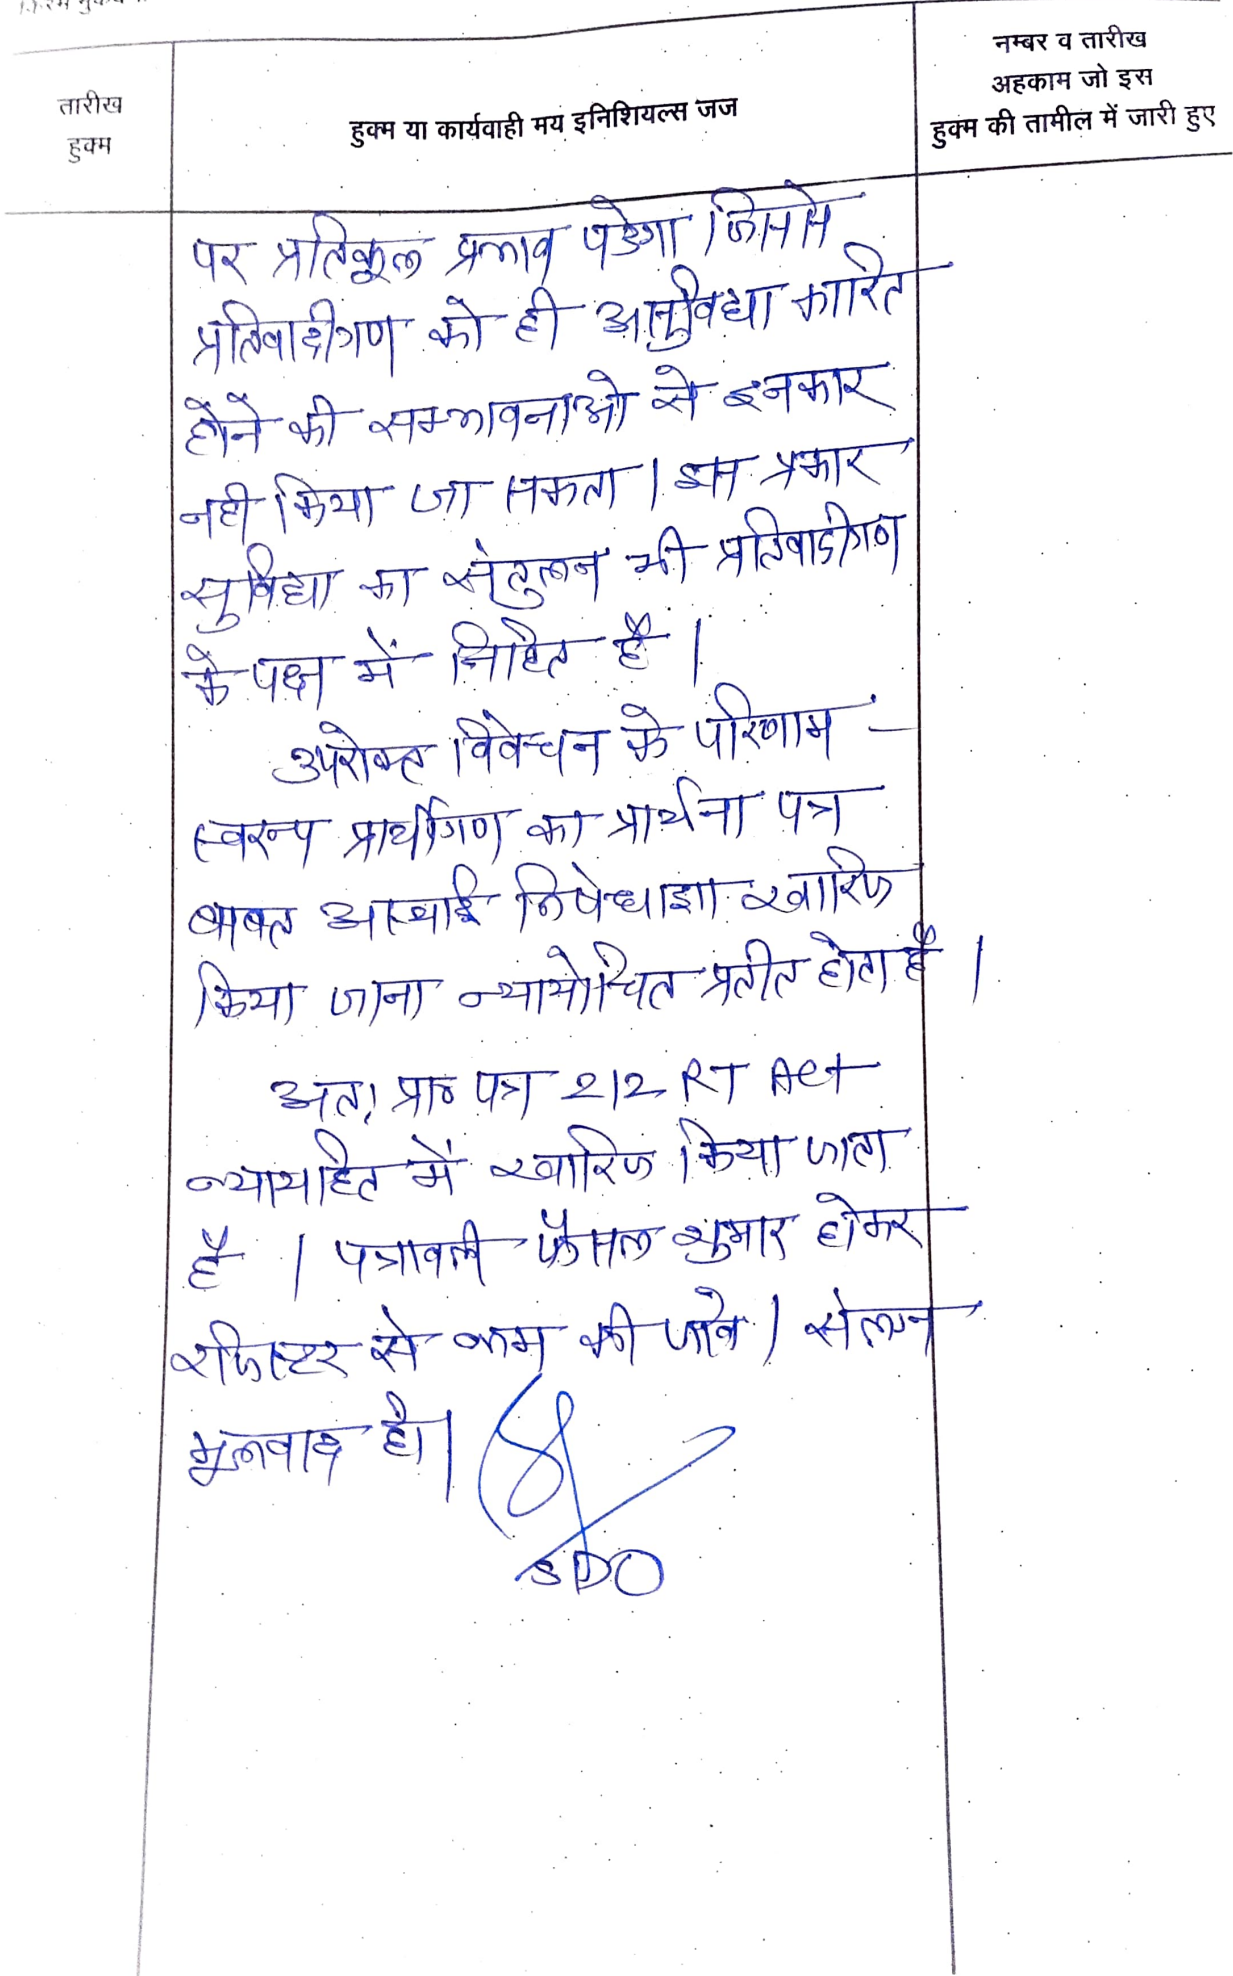 तारीख
हुक्म
हुक्म या कार्यवाही मय इनिशियल्स जज
नम्बर व तारीख
अहकाम जो इस
हुक्म की तामील में जारी हुए
पर प्रतिकूल प्रभाव पडेगा जिससे
प्रतिवादीगण को ही असुविधा कारित
होने की सम्भावनाओ से इनकार
नही किया जा सकता । इस प्रकार
सुविधा का संतुलन भी प्रतिवादीगण
के पक्ष में निहित है ।
उपरोक्त विवेचन के परिणाम -
स्वरूप प्रार्थीगण का प्रार्थना पत्र
बाबत अस्थाई निषेधाज्ञा खारिज
किया जाना न्यायोचित प्रतीत होता है ।
अतः प्रा० पत्र 212 RT Act
न्यायहित में खारिज किया जाता
है । पत्रावली फैसल शुमार होकर
रजिस्टर से कम की जावे । संलग्न
मूलवाद हो।
SDO